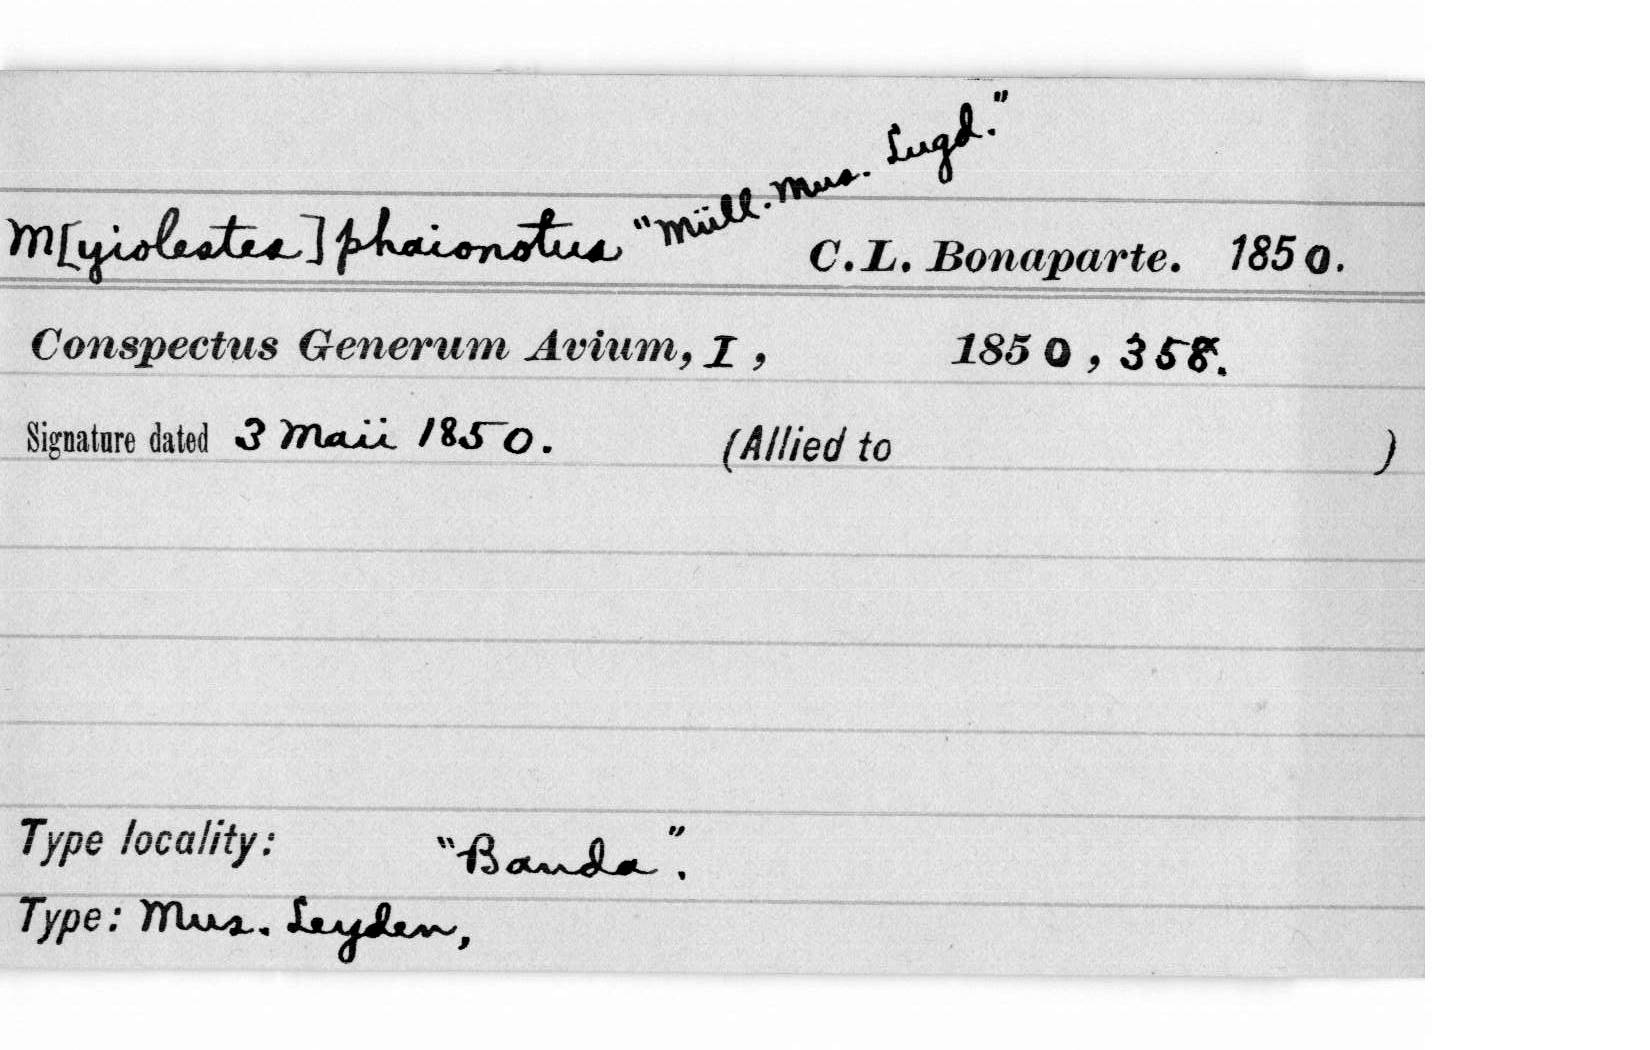 M[yiolestes] phaionotus "Müll. Mus. Lugd." C.L. Bonaparte. 1850.
Conspectus Generum Avium, I, 1850, 358.
Signature dated 3 Maii 1850. (Allied to )
Type locality: "Banda".
Type: Mus. Leyden,